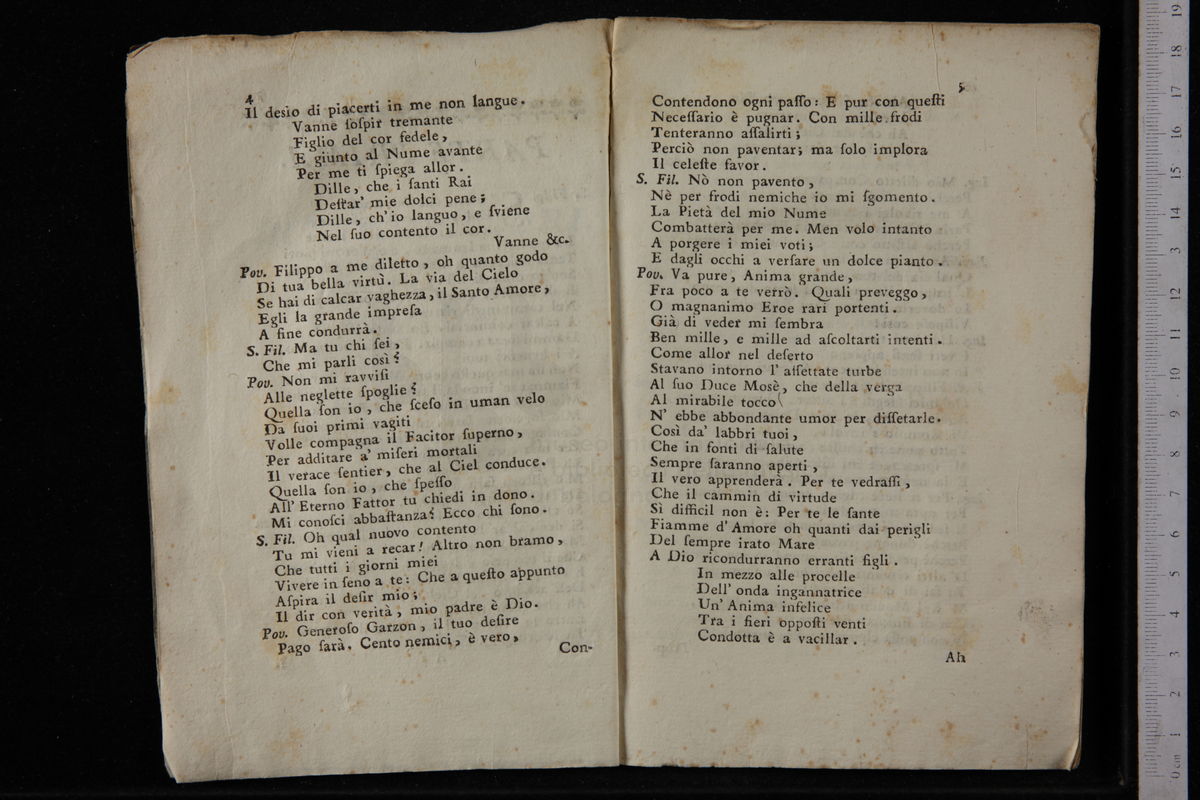 4
Il desìo di piacerti in me non langue.
Vanne ſoſpir tremante
Figlio del cor fedele,
E giunto al Nume avante
Per me ti ſpiega allor.
Dille, che i ſanti Rai
Deſtar' mie dolci pene;
Dille, ch'io languo, e ſviene
Nel ſuo contento il cor.
Vanne &c.
Pov. Filippo a me diletto, oh quanto godo
Di tua bella virtù. La via del Cielo
Se hai di calcar vaghezza, il Santo Amore,
Egli la grande impreſa
A fine condurrà.
S. Fil. Ma tu chi ſei,
Che mi parli così?
Pov. Non mi ravviſi
Alle neglette ſpoglie?
Quella ſon io, che ſceſo in uman velo
Da ſuoi primi vagiti
Volle compagna il Facitor ſuperno,
Per additare a' miſeri mortali
Il verace ſentier, che al Ciel conduce.
Quella ſon io, che ſpeſſo
All' Eterno Fattor tu chiedi in dono.
Mi conoſci abbaſtanza? Ecco chi ſono.
S. Fil. Oh qual nuovo contento
Tu mi vieni a recar! Altro non bramo,
Che tutti i giorni miei
Vivere in ſeno a te: Che a queſto appunto
Aſpira il deſir mio;
Il dir con verità, mio padre è Dio.
Pov. Generoſo Garzon, il tuo deſire
Pago ſarà. Cento nemici, è vero,
Con-
5
Contendono ogni paſſo: E pur con queſti
Neceſſario è pugnar. Con mille frodi
Tenteranno aſſalirti;
Perciò non paventar; ma ſolo implora
Il celeſte favor.
S. Fil. Nò non pavento,
Nè per frodi nemiche io mi ſgomento.
La Pietà del mio Nume
Combatterà per me. Men volo intanto
A porgere i miei voti;
E dagli occhi a verſare un dolce pianto.
Pov. Va pure, Anima grande,
Fra poco a te verrò. Quali preveggo,
O magnanimo Eroe rari portenti.
Già di veder mi ſembra
Ben mille, e mille ad aſcoltarti intenti.
Come allor nel deſerto
Stavano intorno l' aſſettate turbe
Al ſuo Duce Mosè, che della verga
Al mirabile tocco
N' ebbe abbondante umor per diſſetarle.
Così da' labbri tuoi,
Che in fonti di ſalute
Sempre ſaranno aperti,
Il vero apprenderà. Per te vedraſſi,
Che il cammin di virtude
Sì difficil non è: Per te le ſante
Fiamme d' Amore oh quanti dai perigli
Del ſempre irato Mare
A Dio ricondurranno erranti figli.
In mezzo alle procelle
Dell' onda ingannatrice
Un' Anima infelice
Tra i fieri oppoſti venti
Condotta è a vacillar.
Ah